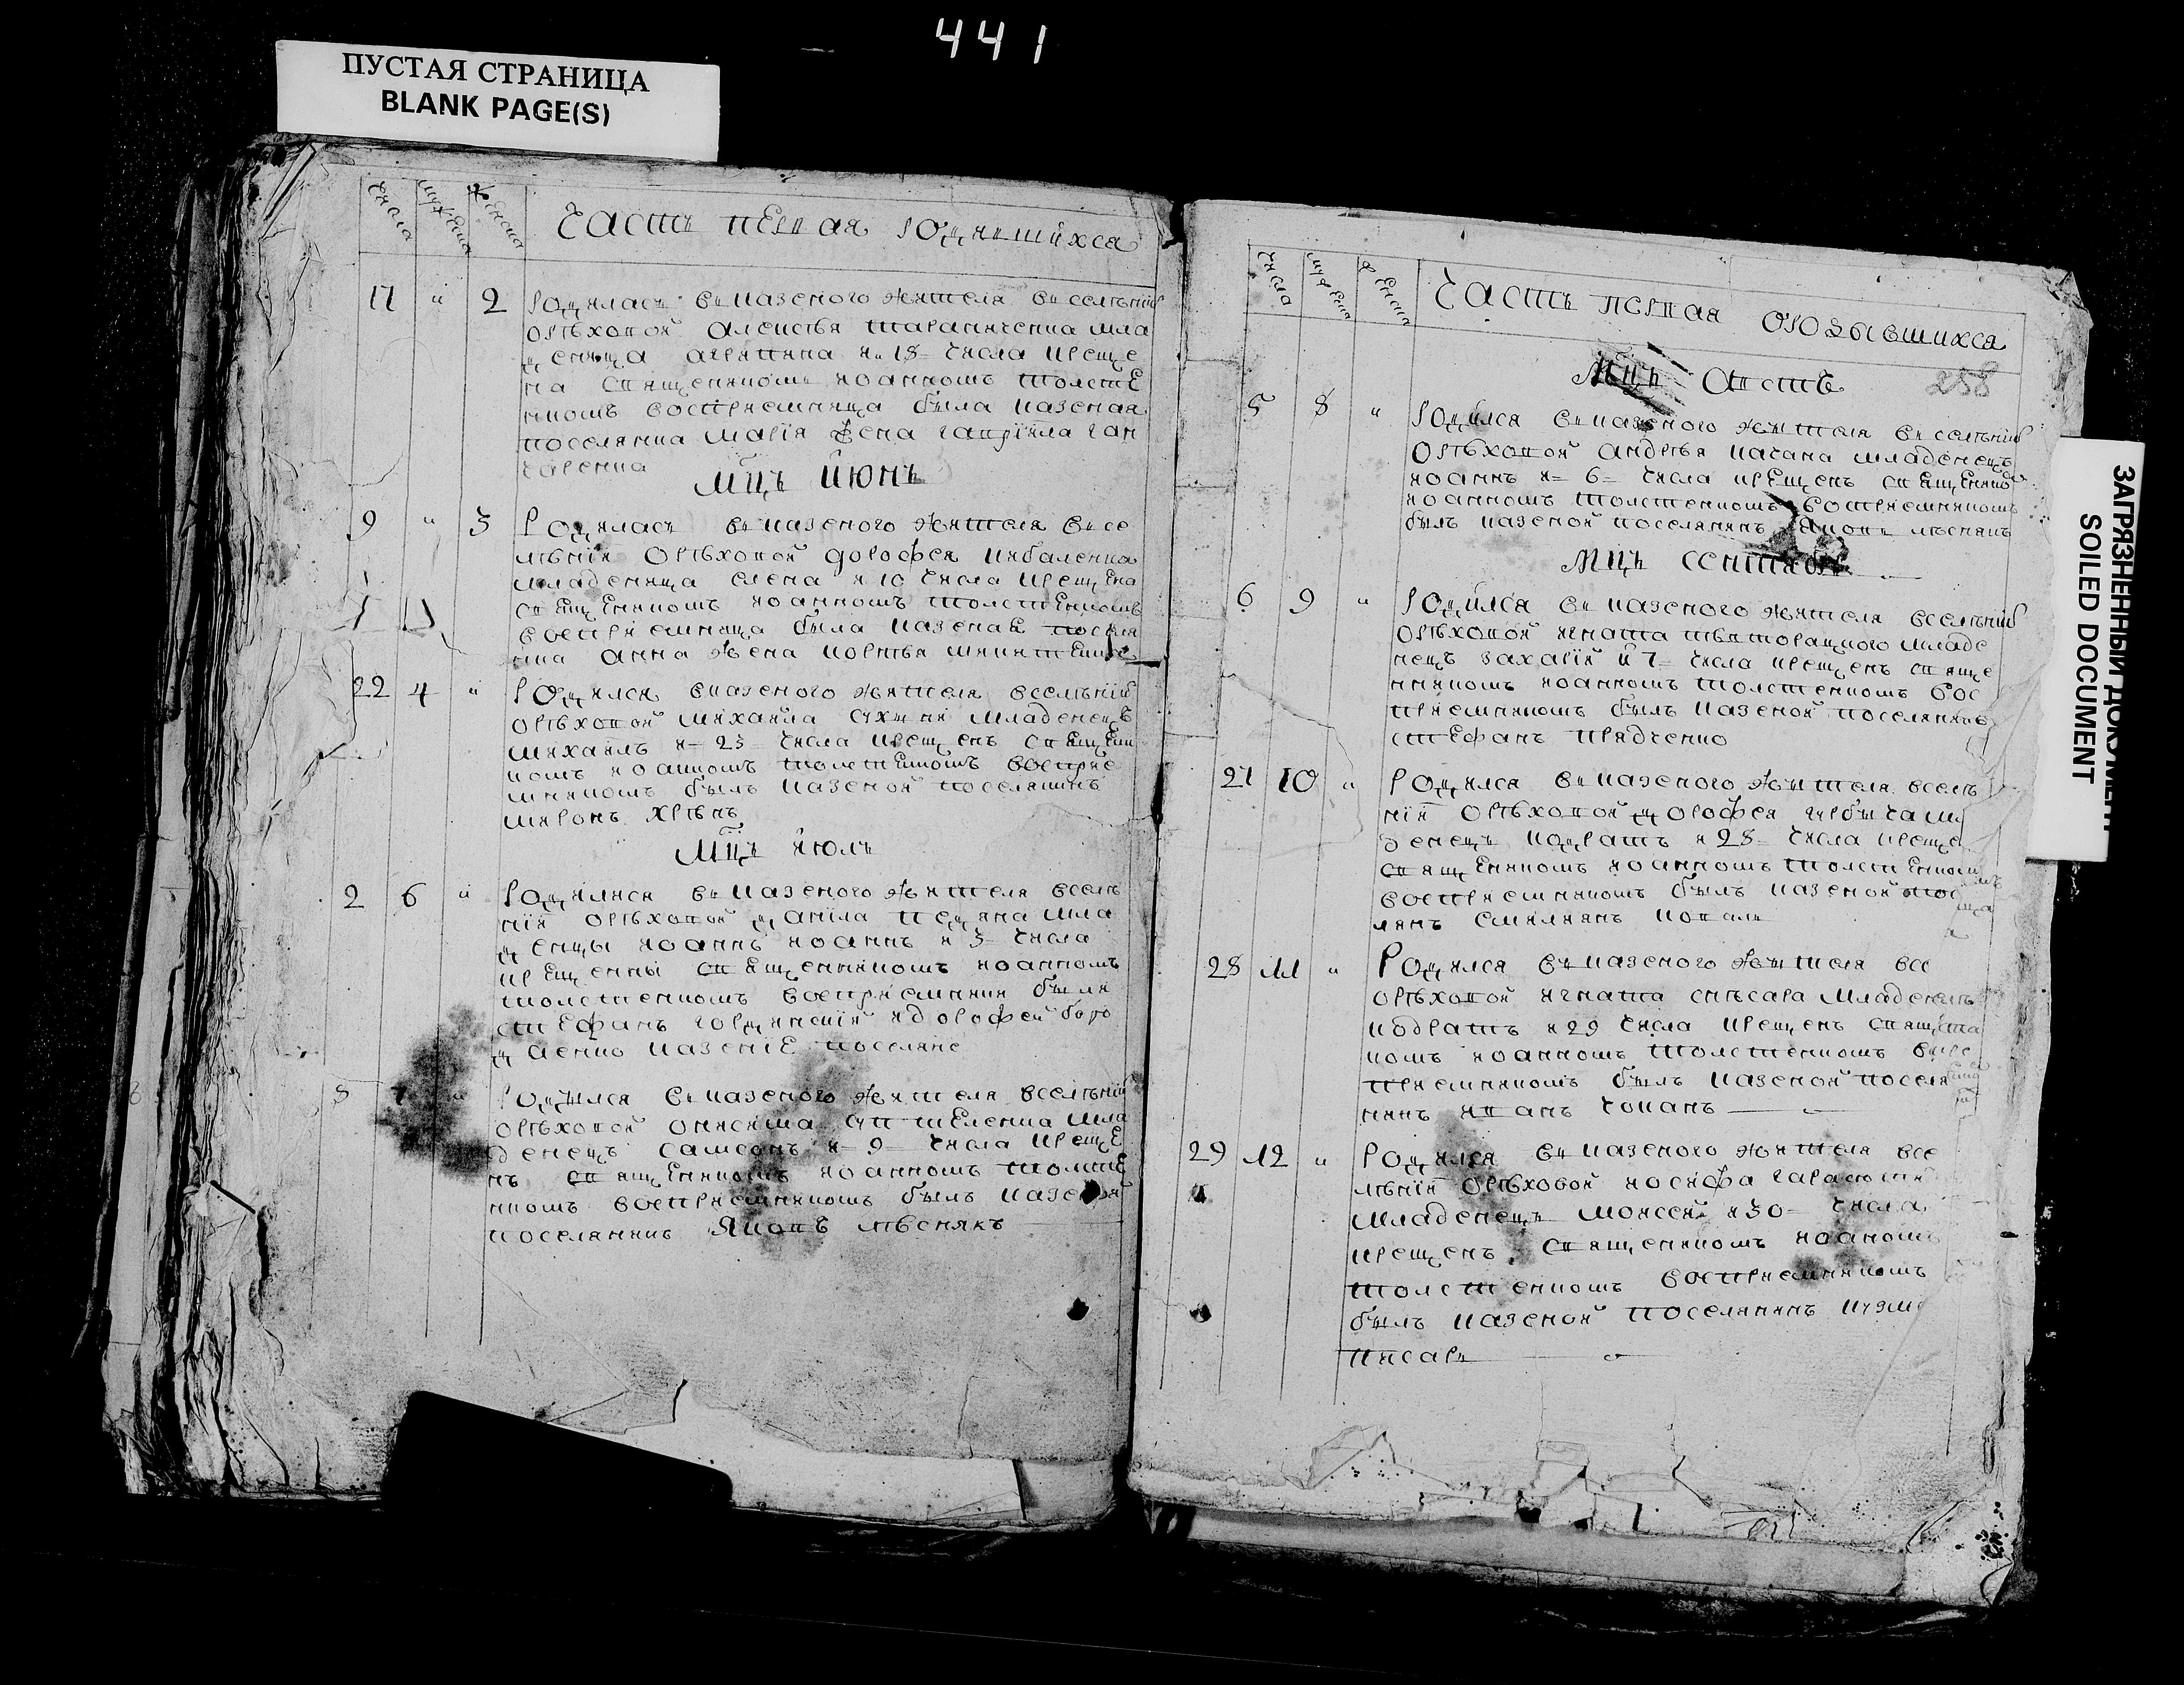 441
ПУСТАЯ СТРАНИЦА
BLANK PAGE(S)
числа мужеска женска
Часть первая родившихся
17 " 2 Родилась в казеного жителя в селѣнии
орѣховой Алексѣя Тараниченка мла
деница Агрипина и 18 числа креще
на священником Иоанномъ Толсте
нкомъ восприемница была казеная
поселянка Мария жена Гавріила Ган
чаренка
Мцъ Июнь
9 " 3 Родилась в казеного жителя в се
лѣнїи Орѣховой Дорофея Цибаленка
младеница Елена и 10 числа крещена
священникомъ Иоанномъ Толстенкомъ
восприемница была казеная поселя
нка Анна жена Корнѣя
22 4 " Родился в казеного жителя в селѣнїи
орѣховой Михайла Сухини младенецъ
Михаилъ и 23 числа крещенъ священи
комъ Иоанномъ Толстенкомъ восприе
мникомъ былъ казеной поселянинъ
Миронъ Хрѣнъ
Мцъ Июль
2 6 " Родилися в казеного жителя в селѣ
нїи орѣховой Данїла Педяна мла
денцы Иоаннъ Иоаннъ и 3 числа
крещенны священникомъ Иоанномъ
Толстенкомъ восприемники были
Стефанъ и Дорофей Боро
даенко казение поселяне
8 7 " Родился в казеного жителя в селѣнїи
орѣховой Онисима мла
денецъ Самсонъ и 9 числа креще
нъ священникомъ Иоанномъ Толсте
нкомъ восприемникомъ былъ казеной
поселянинъ Яковъ Лѣснякъ
числа мужеска женска
Часть первая
Мцъ Августъ
258
5 8 " Родился в казеного жителя в селѣнїи
Орѣховой Андрѣя Качана младенецъ
Иоаннъ и 6 числа крещенъ священико
Иоанномъ Толстенкомъ восприемникомъ
былъ казеной поселянинъ Яковъ Лѣснякъ
Мцъ Сентябрь
6 9 " Родился в казеного жителя в селѣнїи
Орѣховой Игната младе
нецъ Захарїй и 7 числа крещенъ свяще
нникомъ Иоанномъ Толстенкомъ вос
приемникомъ былъ казеной поселянинъ
Стефанъ Прядченко
27 10 " Родился в казеного жителя в селѣ
нїи Орѣховой Дорофея
денецъ Кодратъ и 28 числа креще
священникомъ Иоанномъ Толстенком
восприемникомъ былъ казеной посе
лянъ Емилиянъ Коваль
28 11 " Родился в казеного жителя в се
орѣховой Игната Снѣсара младенецъ
Кодратъ и 29 числа крещенъ священа
комъ Иоанномъ Толстенкомъ
приемникомъ былъ казеной поселя
нинъ Иванъ Чопанъ
29 12 " Родился в казеного жителя в се
лѣнїи Орѣховой Иосифа
младенецъ Моисей и 30 числа
крещенъ Священикомъ Иоаномъ
Толстенкомъ восприемникомъ
былъ казеной поселянинъ Кузма
Писарь
ЗАГРЯЗНЕННЫЙ ДОКУМЕНТ
SOILED DOCUMENT